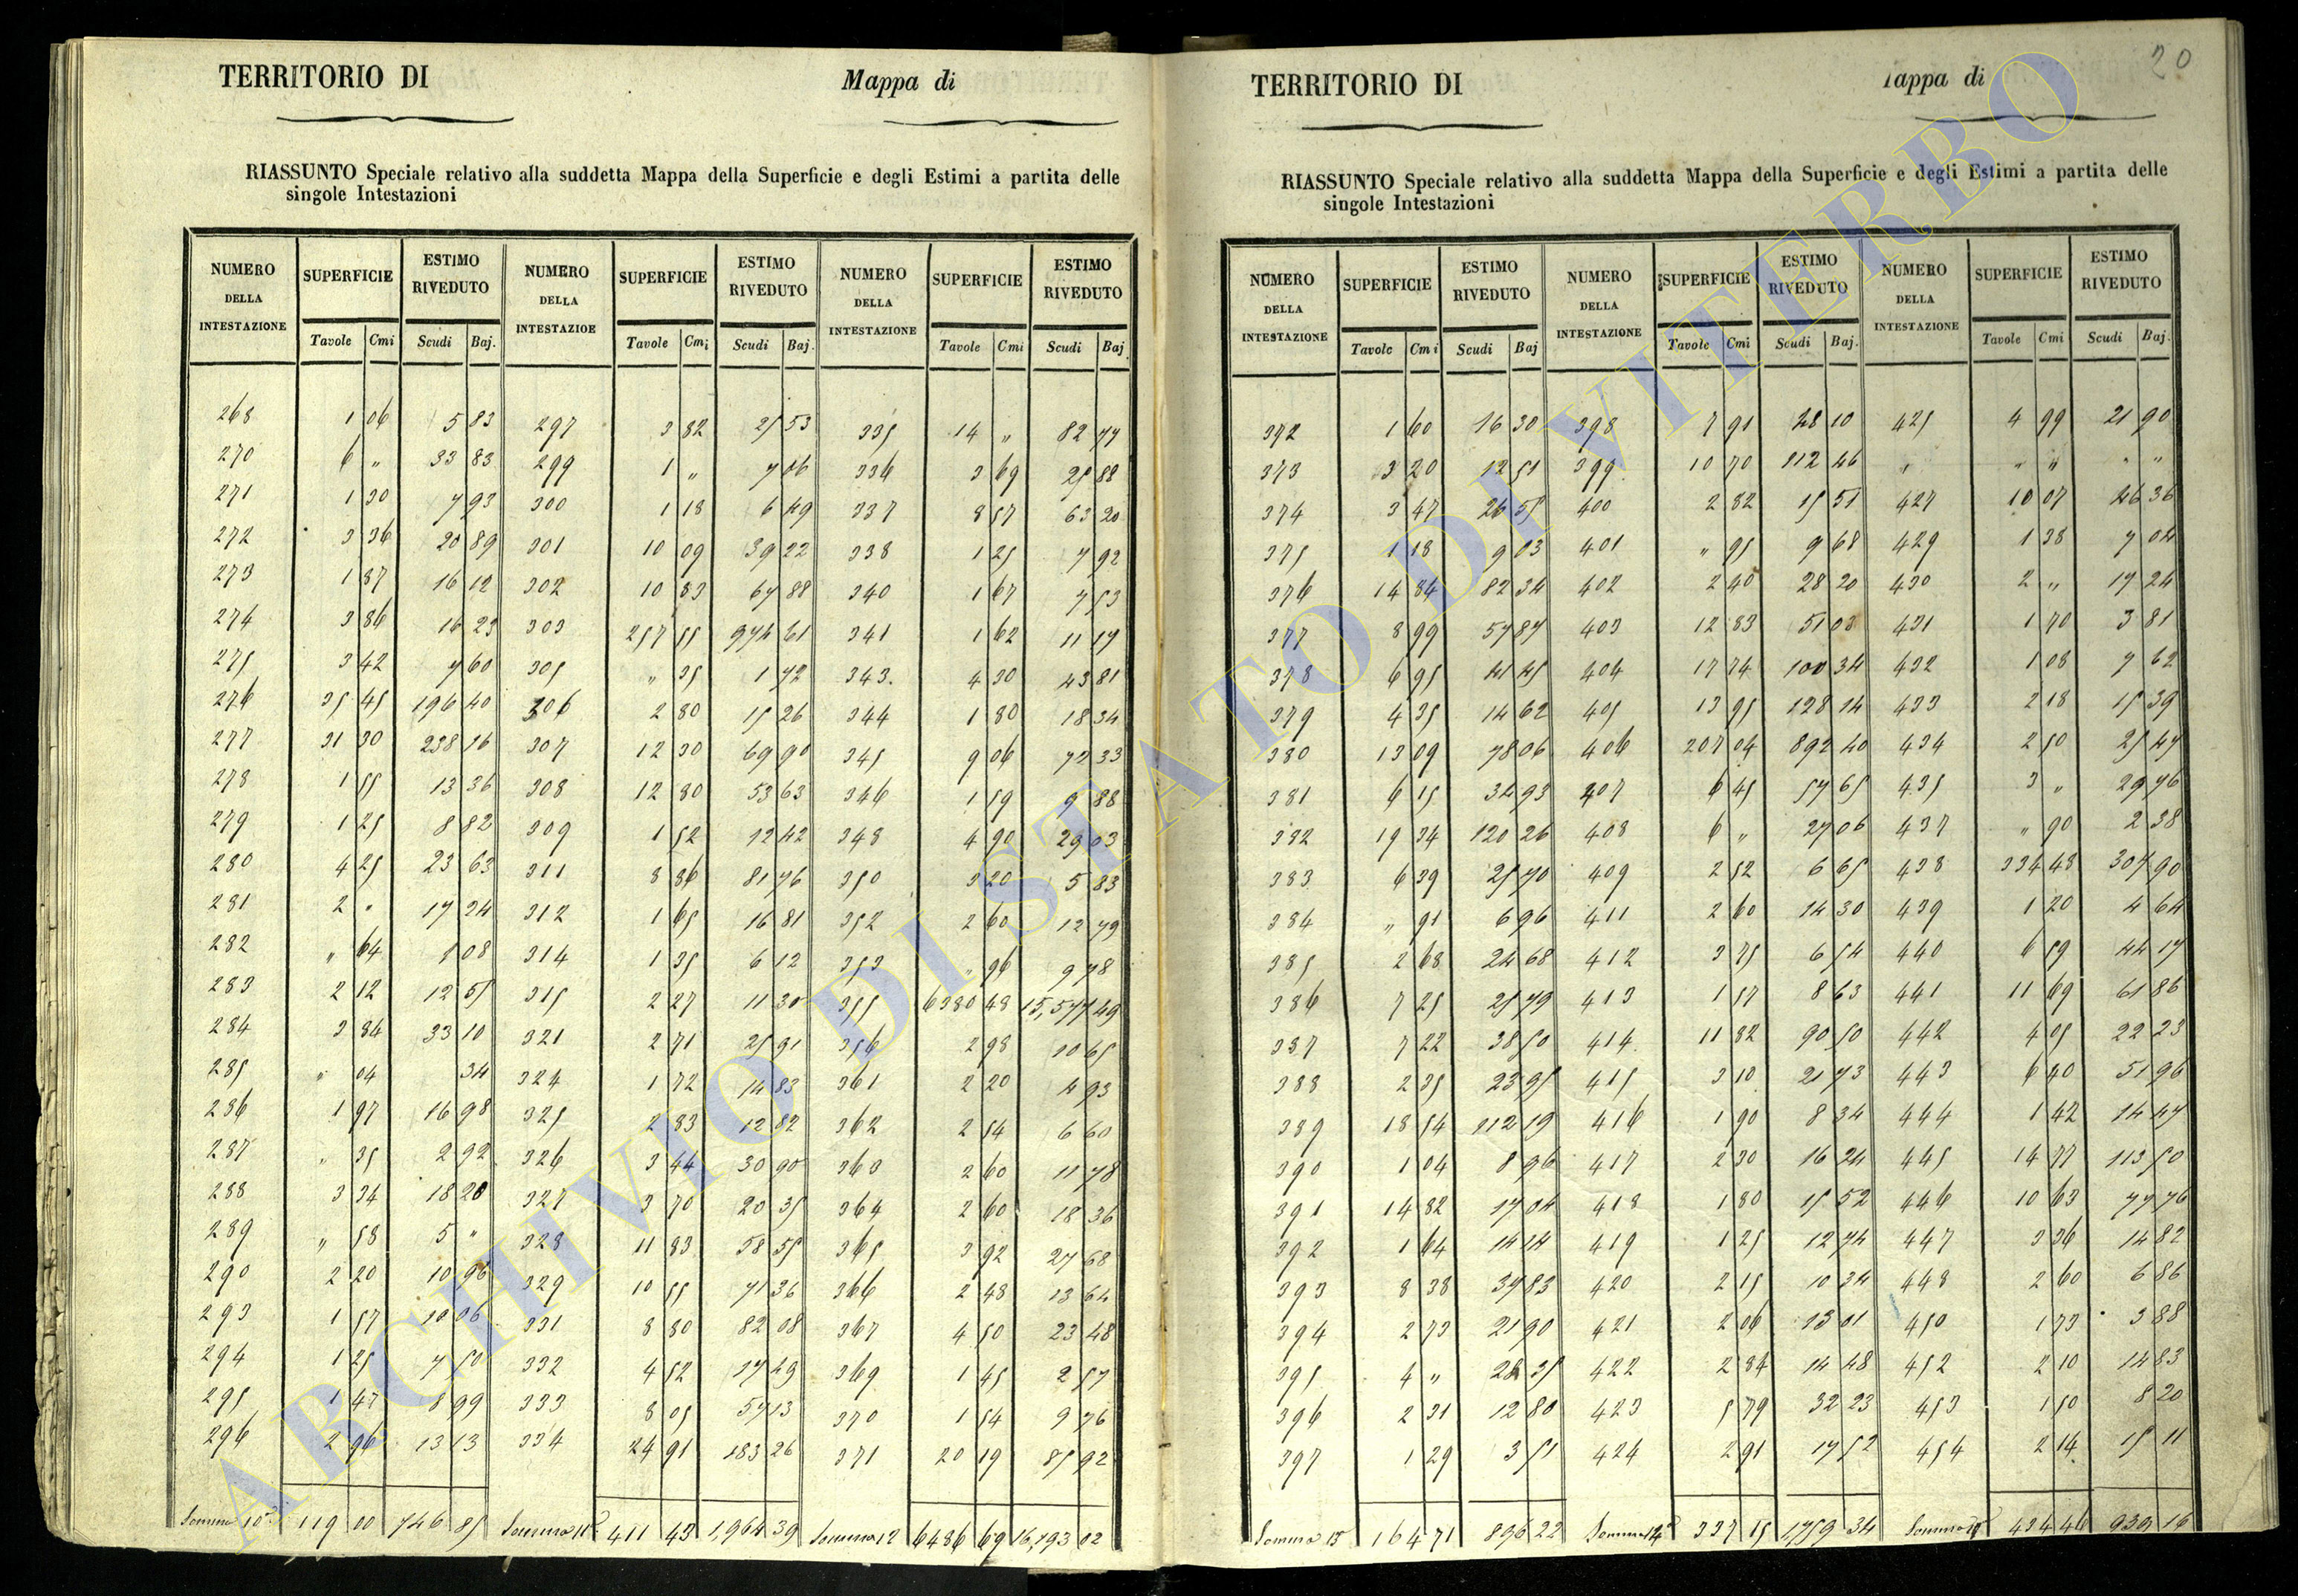 TERRITORIO DI Mappa di
RIASSUNTO Speciale relativo alla suddetta Mappa della Superficie e degli Estimi a partita delle
singole Intestazioni
NUMERO DELLA INTESTAZIONE SUPERFICIE ESTIMO RIVEDUTO NUMERO DELLA INTESTAZIOE SUPERFICIE ESTIMO RIVEDUTO NUMERO DELLA INTESTAZIONE SUPERFICIE ESTIMO RIVEDUTO
Tavole Cmi Scudi Baj. Tavole Cmi Scudi Baj. Tavole Cmi Scudi Baj.
268 1 06 5 83 297 3 82 25 53 335 14 " 82 77
270 6 " 33 83 299 1 " 7 06 336 3 69 25 88
271 1 30 7 93 300 1 18 6 49 337 8 57 63 20
272 3 36 20 89 301 10 09 39 22 338 1 25 7 92
273 1 87 16 12 302 10 83 67 88 340 1 67 7 53
274 3 86 16 23 303 257 55 974 61 341 1 62 11 17
275 3 42 7 60 305 " 35 1 72 343. 4 30 43 81
276 35 45 196 40 306 2 80 15 26 344 1 80 18 34
277 31 30 238 16 307 12 30 69 90 345 9 06 72 33
278 1 55 13 36 308 12 80 53 63 346 1 59 9 88
279 1 25 8 82 309 1 52 12 42 348 4 90 29 03
280 4 25 23 63 311 8 86 81 76 350 3 20 5 83
281 2 " 17 24 312 1 65 16 81 352 2 60 12 79
282 " 64 1 08 314 1 35 6 12 353 " 96 9 78
283 2 12 12 55 315 2 27 11 30 355 6380 48 15,577 49
284 3 84 33 10 321 2 71 25 91 356 2 98 10 65
285 " 04 34 324 1 72 14 83 361 2 20 4 93
286 1 97 16 98 325 2 83 12 82 362 2 54 6 60
287 " 35 2 92 326 3 44 30 90 363 2 60 11 78
288 3 34 18 20 327 3 70 20 35 364 2 60 18 36
289 " 58 5 " 328 11 83 58 55 365 3 92 27 68
290 2 20 10 96 329 10 55 71 36 366 2 48 13 64
293 1 57 10 06 331 8 80 82 08 367 4 50 23 48
294 1 25 7 50 332 4 52 17 49 369 1 45 2 57
295 1 47 8 99 333 8 05 57 13 370 1 54 9 76
296 2 96 13 13 334 24 91 183 26 371 20 19 85 92
Somma 10ª 119 00 746 85 Somma 11ª 411 43 1,964 39 Somma 12 6486 69 16,193 02
20
TERRITORIO DI appa di
RIASSUNTO Speciale relativo alla suddetta Mappa della Superficie e degli Estimi a partita delle
singole Intestazioni
NUMERO DELLA INTESTAZIONE SUPERFICIE ESTIMO RIVEDUTO NUMERO DELLA INTESTAZIONE SUPERFICIE ESTIMO RIVEDUTO NUMERO DELLA INTESTAZIONE SUPERFICIE ESTIMO RIVEDUTO
Tavole Cmi Scudi Baj Tavole Cmi Scudi Baj. Tavole Cmi Scudi Baj.
372 1 60 16 30 398 7 91 48 10 425 4 99 21 90
373 3 20 12 51 399 10 70 112 46 " " " " "
374 3 47 26 55 400 2 82 15 51 427 10 07 46 36
375 1 18 9 03 401 " 95 9 68 429 1 38 7 04
376 14 84 82 34 402 2 40 28 20 430 2 " 17 24
377 8 99 57 87 403 12 83 51 03 431 1 70 3 81
378 6 95 41 45 404 17 74 100 34 432 1 08 7 62
379 4 35 14 62 405 13 95 128 14 433 2 18 15 39
380 13 09 78 06 406 207 04 892 40 434 2 50 25 47
381 6 15 34 93 407 6 45 57 65 435 3 " 29 76
382 19 34 120 26 408 6 " 27 06 437 " 90 2 38
383 6 39 25 70 409 2 52 6 65 438 334 48 307 90
384 " 91 6 96 411 2 60 14 30 439 1 20 4 64
385 2 68 24 68 412 3 75 6 54 440 6 59 44 17
386 7 25 25 79 413 1 57 8 63 441 11 69 61 86
387 7 22 38 50 414. 11 82 90 50 442 4 05 22 23
388 2 35 23 95 415 3 10 21 73 443 6 40 51 96
389 18 54 112 19 416 1 90 8 34 444 1 42 14 47
390 1 04 8 96 417 2 30 16 24 445 14 77 113 50
391 14 82 17 04 418 1 80 15 52 446 10 63 77 76
392 1 64 14 14 419 1 25 12 74 447 3 36 14 82
393 8 38 37 83 420 2 15 10 34 448 2 60 6 86
394 2 73 21 90 421 2 06 13 01 450 1 73 3 88
395 4 " 28 35 422 2 84 14 48 452 2 10 14 83
396 2 31 12 80 423 5 79 32 23 453 1 50 8 20
397 1 29 3 51 424 2 91 17 52 454 2 14 15 11
Somma 13 164 71 896 22 Somma 14ª 337 15 1,759 34 Somma 434 46 939 16
ARCHIVIO DI STATO DI VITERBO